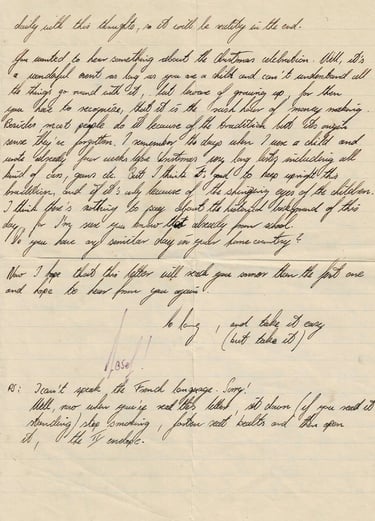 daily with this thoughts, so it will be reality in the end.
You wanted to hear something about the Christmas celebration. Well, it's
a wonderful event as long as you are a child and can't understand all
the things go round with it, but beware of growing up, for then
you have to recognize, that it is the rush hour of money making.
Besides, most people do it because of the tradition but its origin
sense they've forgotten. I remember the days when I was a child and
wrote already four weeks before Christmas very long lists including all
kind of cars, guns etc. But I think it's good to keep upright this
tradition, and if it's only because of the shining eyes of the children.
I think there's nothing to say about the historical background of this
day, for I'm sure you know that already from school.
Do you have any similar day in your homecountry?
Now I hope that this letter will reach you sooner than the first one
and hope to hear from you again.
so long, and take it easy
(but take it)
PS: I can't speak the French language. Sorry!
Well, now when you've read this letter, sit down (if you read it
standing) stop smoking, fasten seat bealts and then open
it, the envelope.